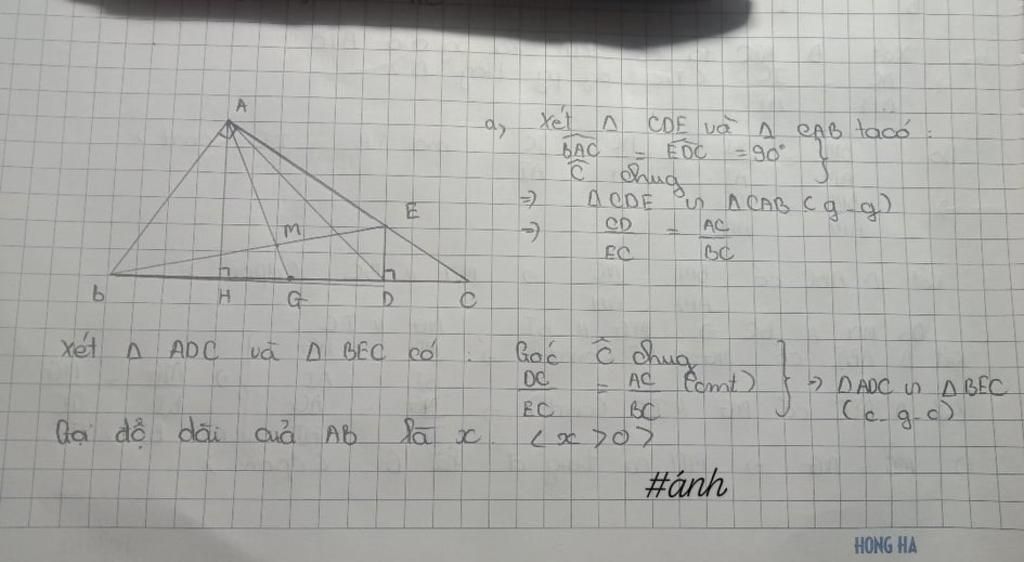 A
E
M
B
H
G
D
C
a, Xét Δ CDE và Δ CAB ta có :
BAC = EDC = 90°
C chung
=> Δ CDE ∽ Δ CAB (g-g)
=> CD/EC = AC/BC
Xét Δ ADC và Δ BEC có : Góc C chung
DC/EC = AC/BC (cmt) } => ΔADC ∽ ΔBEC
(c-g-c)
Gọi độ dài của AB là x <x>0>
#ánh
HONG HA